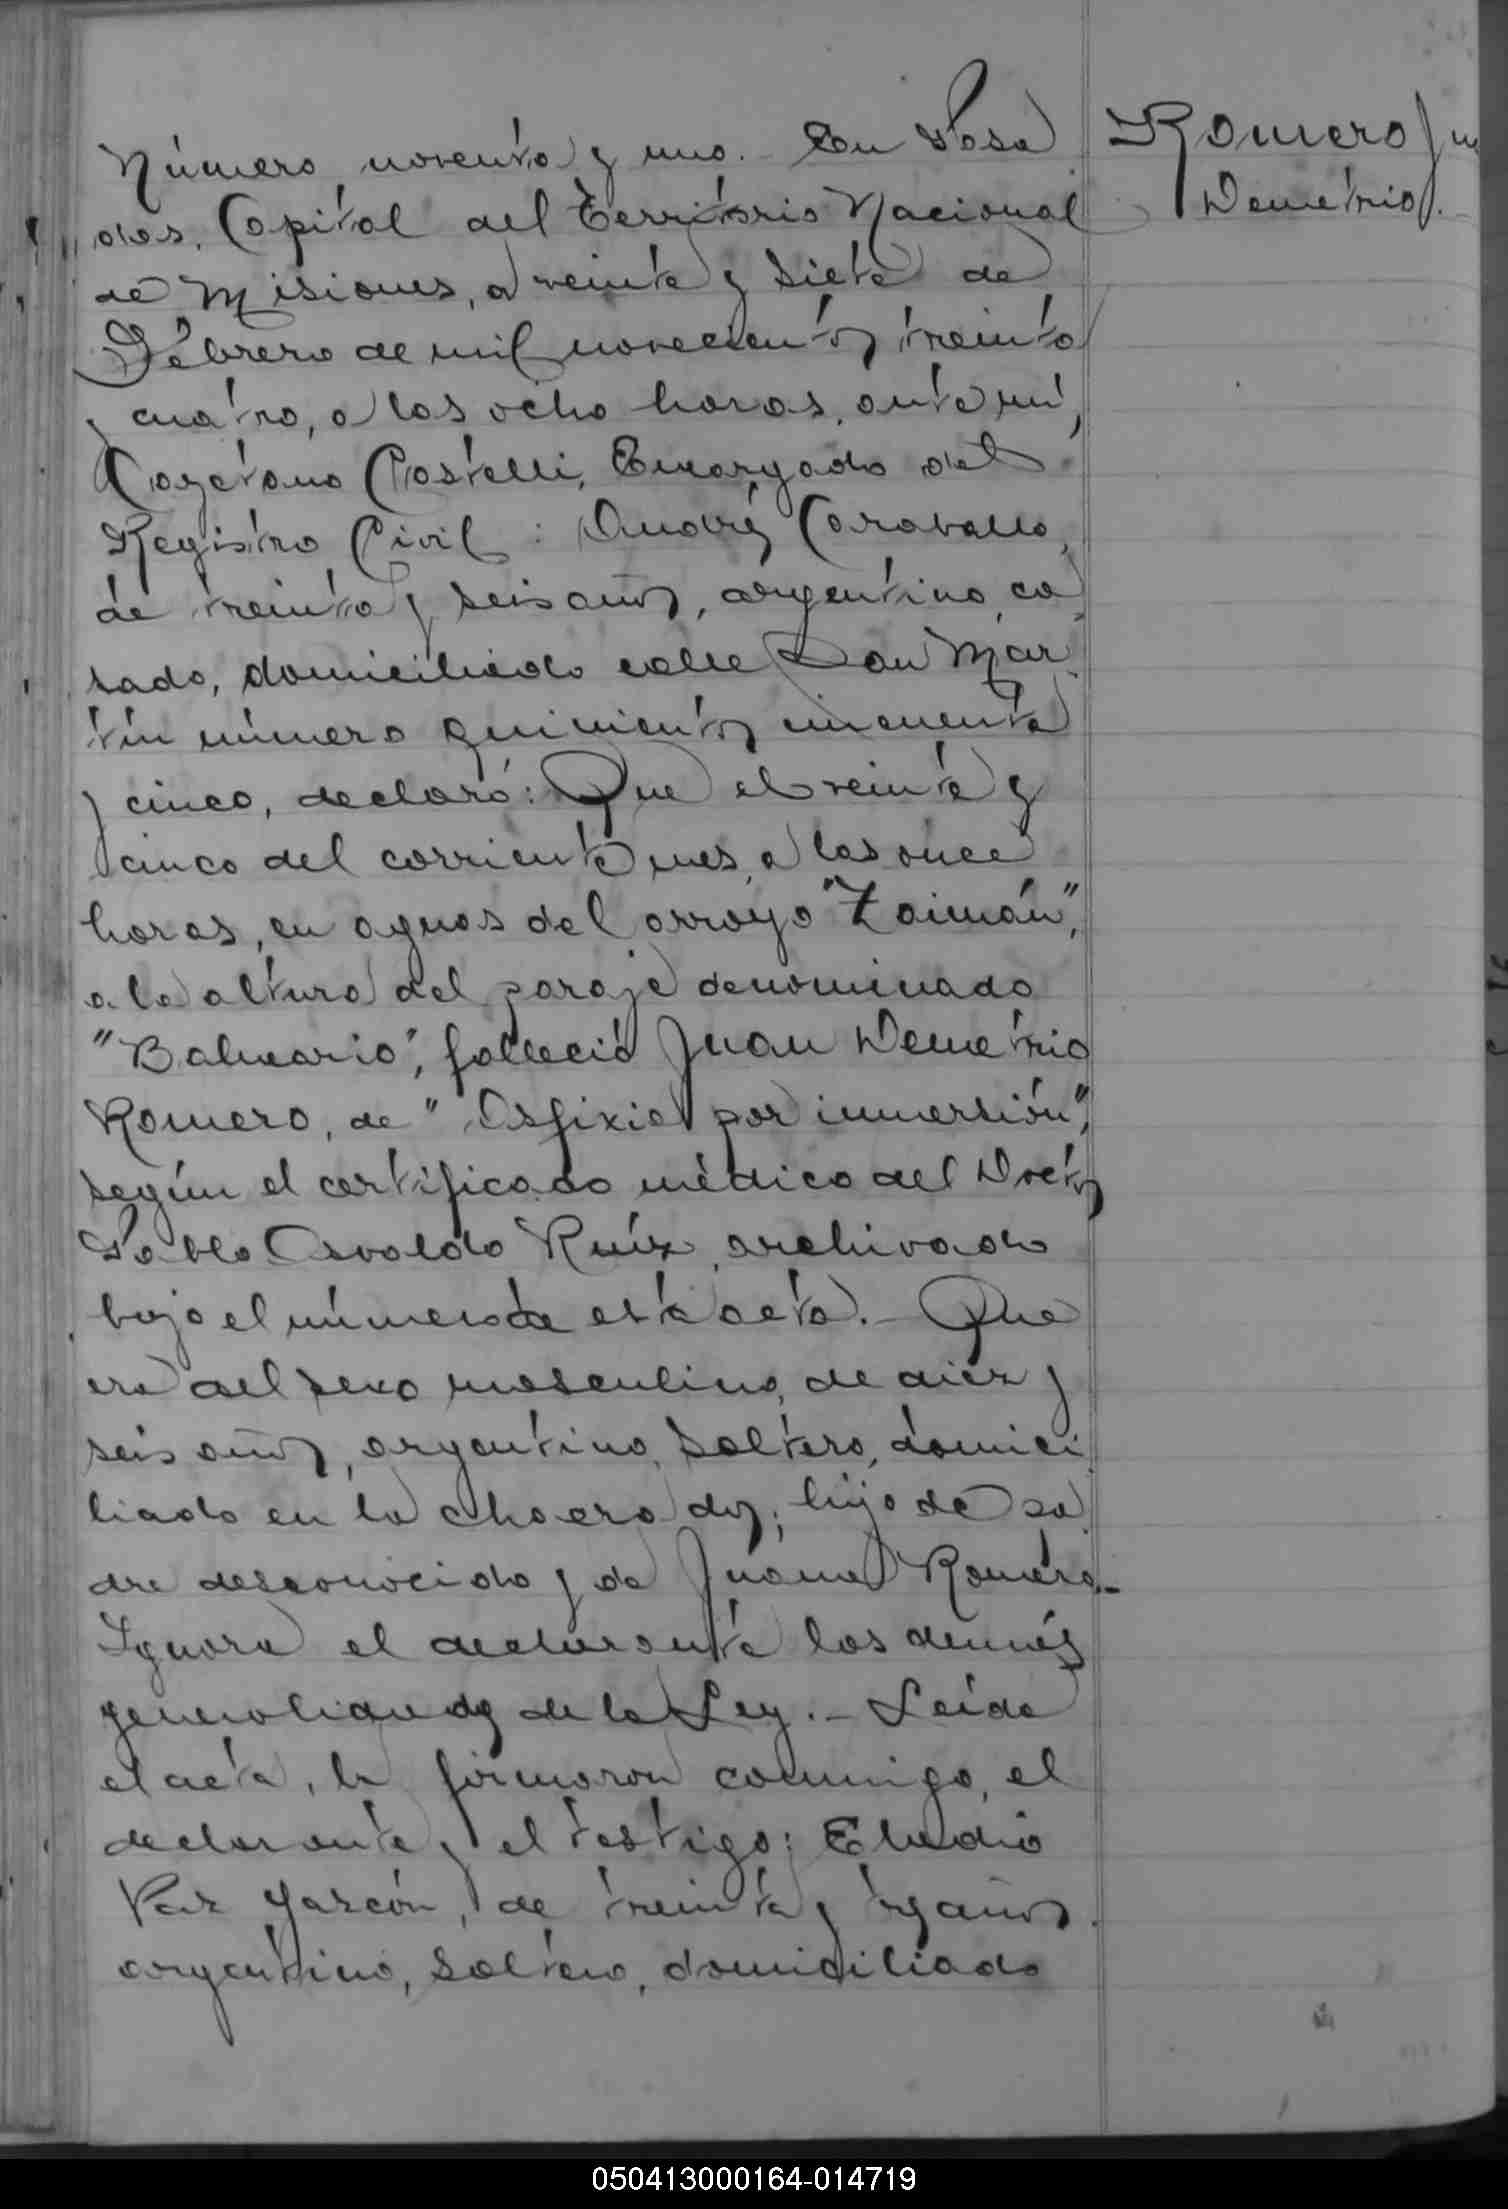 Número noventa y uno. En Posa
das, Capital del Territorio Nacional
de Misiones, a veinte y siete de
Febrero de mil novecientos treinta
y cuatro, a las ocho horas, ante mí,
Cayetano Castelli, Encargado del
Registro Civil: Andrés Caraballo,
de treinta y seis años, argentino, ca
sado, domiciliado calle San Mar
tín número quinientos cincuenta
y cinco, declaró: Que el veinte y
cinco del corriente mes, a las once
horas, en aguas del arroyo "Zaimán",
a la altura del paraje denominado
"Balneario", falleció Juan Demetrio
Romero, de "Asfixia por inmersión",
según el certificado médico del Doctor
Pablo Osvaldo Ruíz, archivado
bajo el número de esta acta.- Que
era del sexo masculino, de diez y
seis años, argentino, soltero, domici
liado en la chacra dos; hijo de pa
dre desconocido y de Juana Romero.-
Ignora el declarante las demás
generalidades de la Ley.- Leída
el acta, la firmaron conmigo, el
declarante y el testigo: Eludio
Paz Garzón, de treinta y tres años.
argentino, soltero, domiciliado
Romero Ju
Demetrio.
050413000164-014719